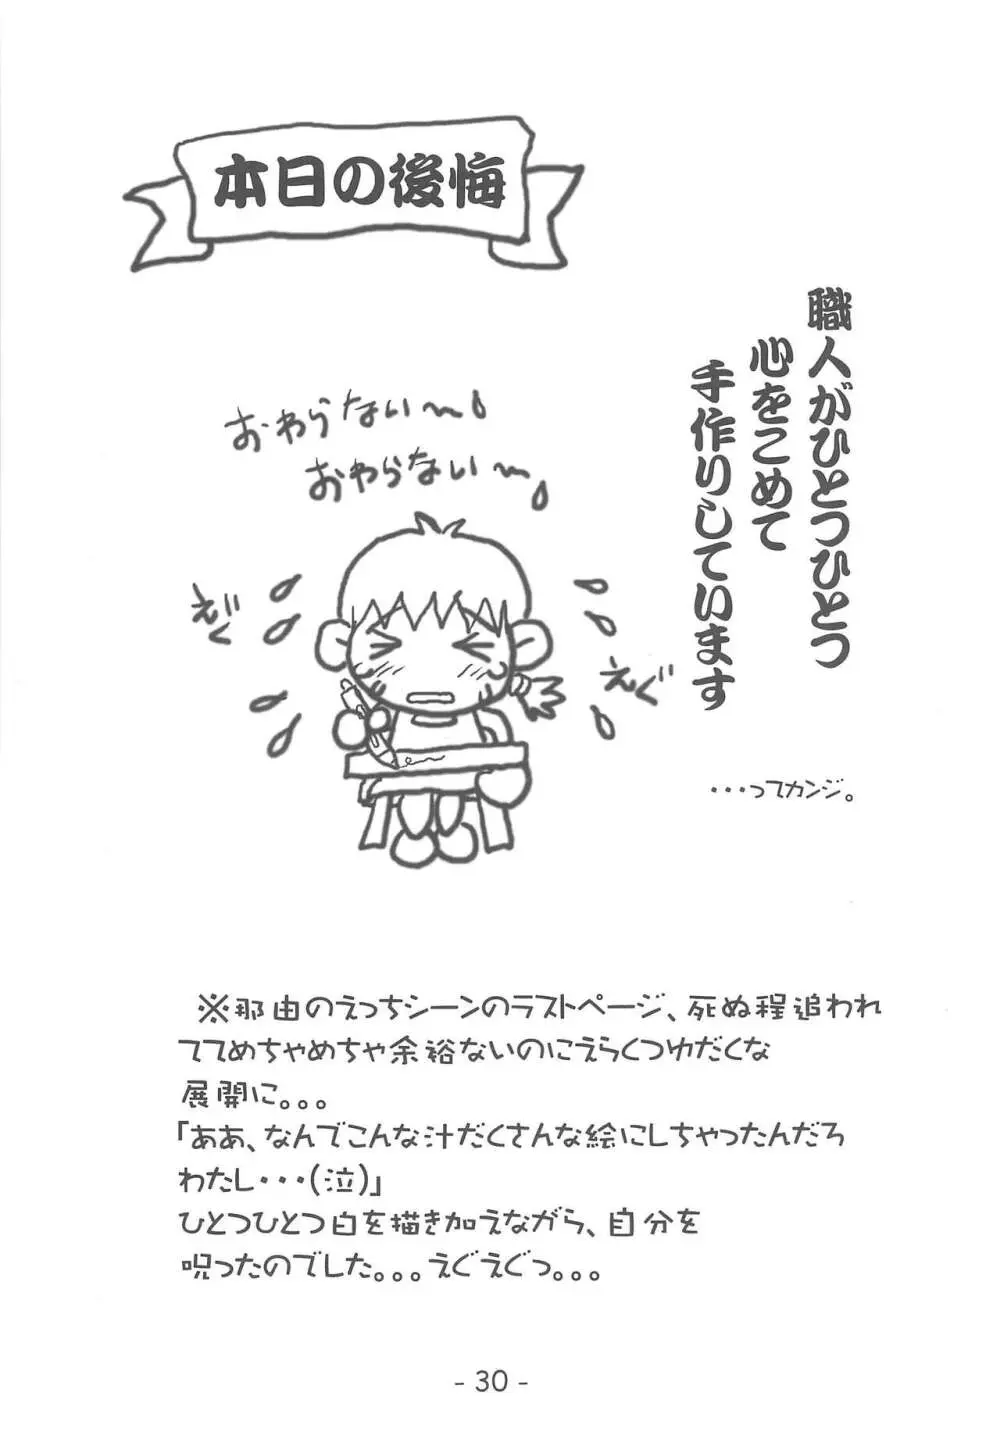 本日の後悔
職人がひとつひとつ
心をこめて
手作りしています
・・・ってカンジ。
おわらない〜
おわらない〜
えぐ
えぐ
※那由のえっちシーンのラストページ、死ぬ程追われ
ててめちゃめちゃ余裕ないのにえらくつゆだくな
展開に。。。
「ああ、なんでこんな汁だくさんな絵にしちゃったんだろ
わたし・・・(泣)」
ひとつひとつ白を描き加えながら、自分を
呪ったのでした。。。えぐえぐっ。。。
- 30 -